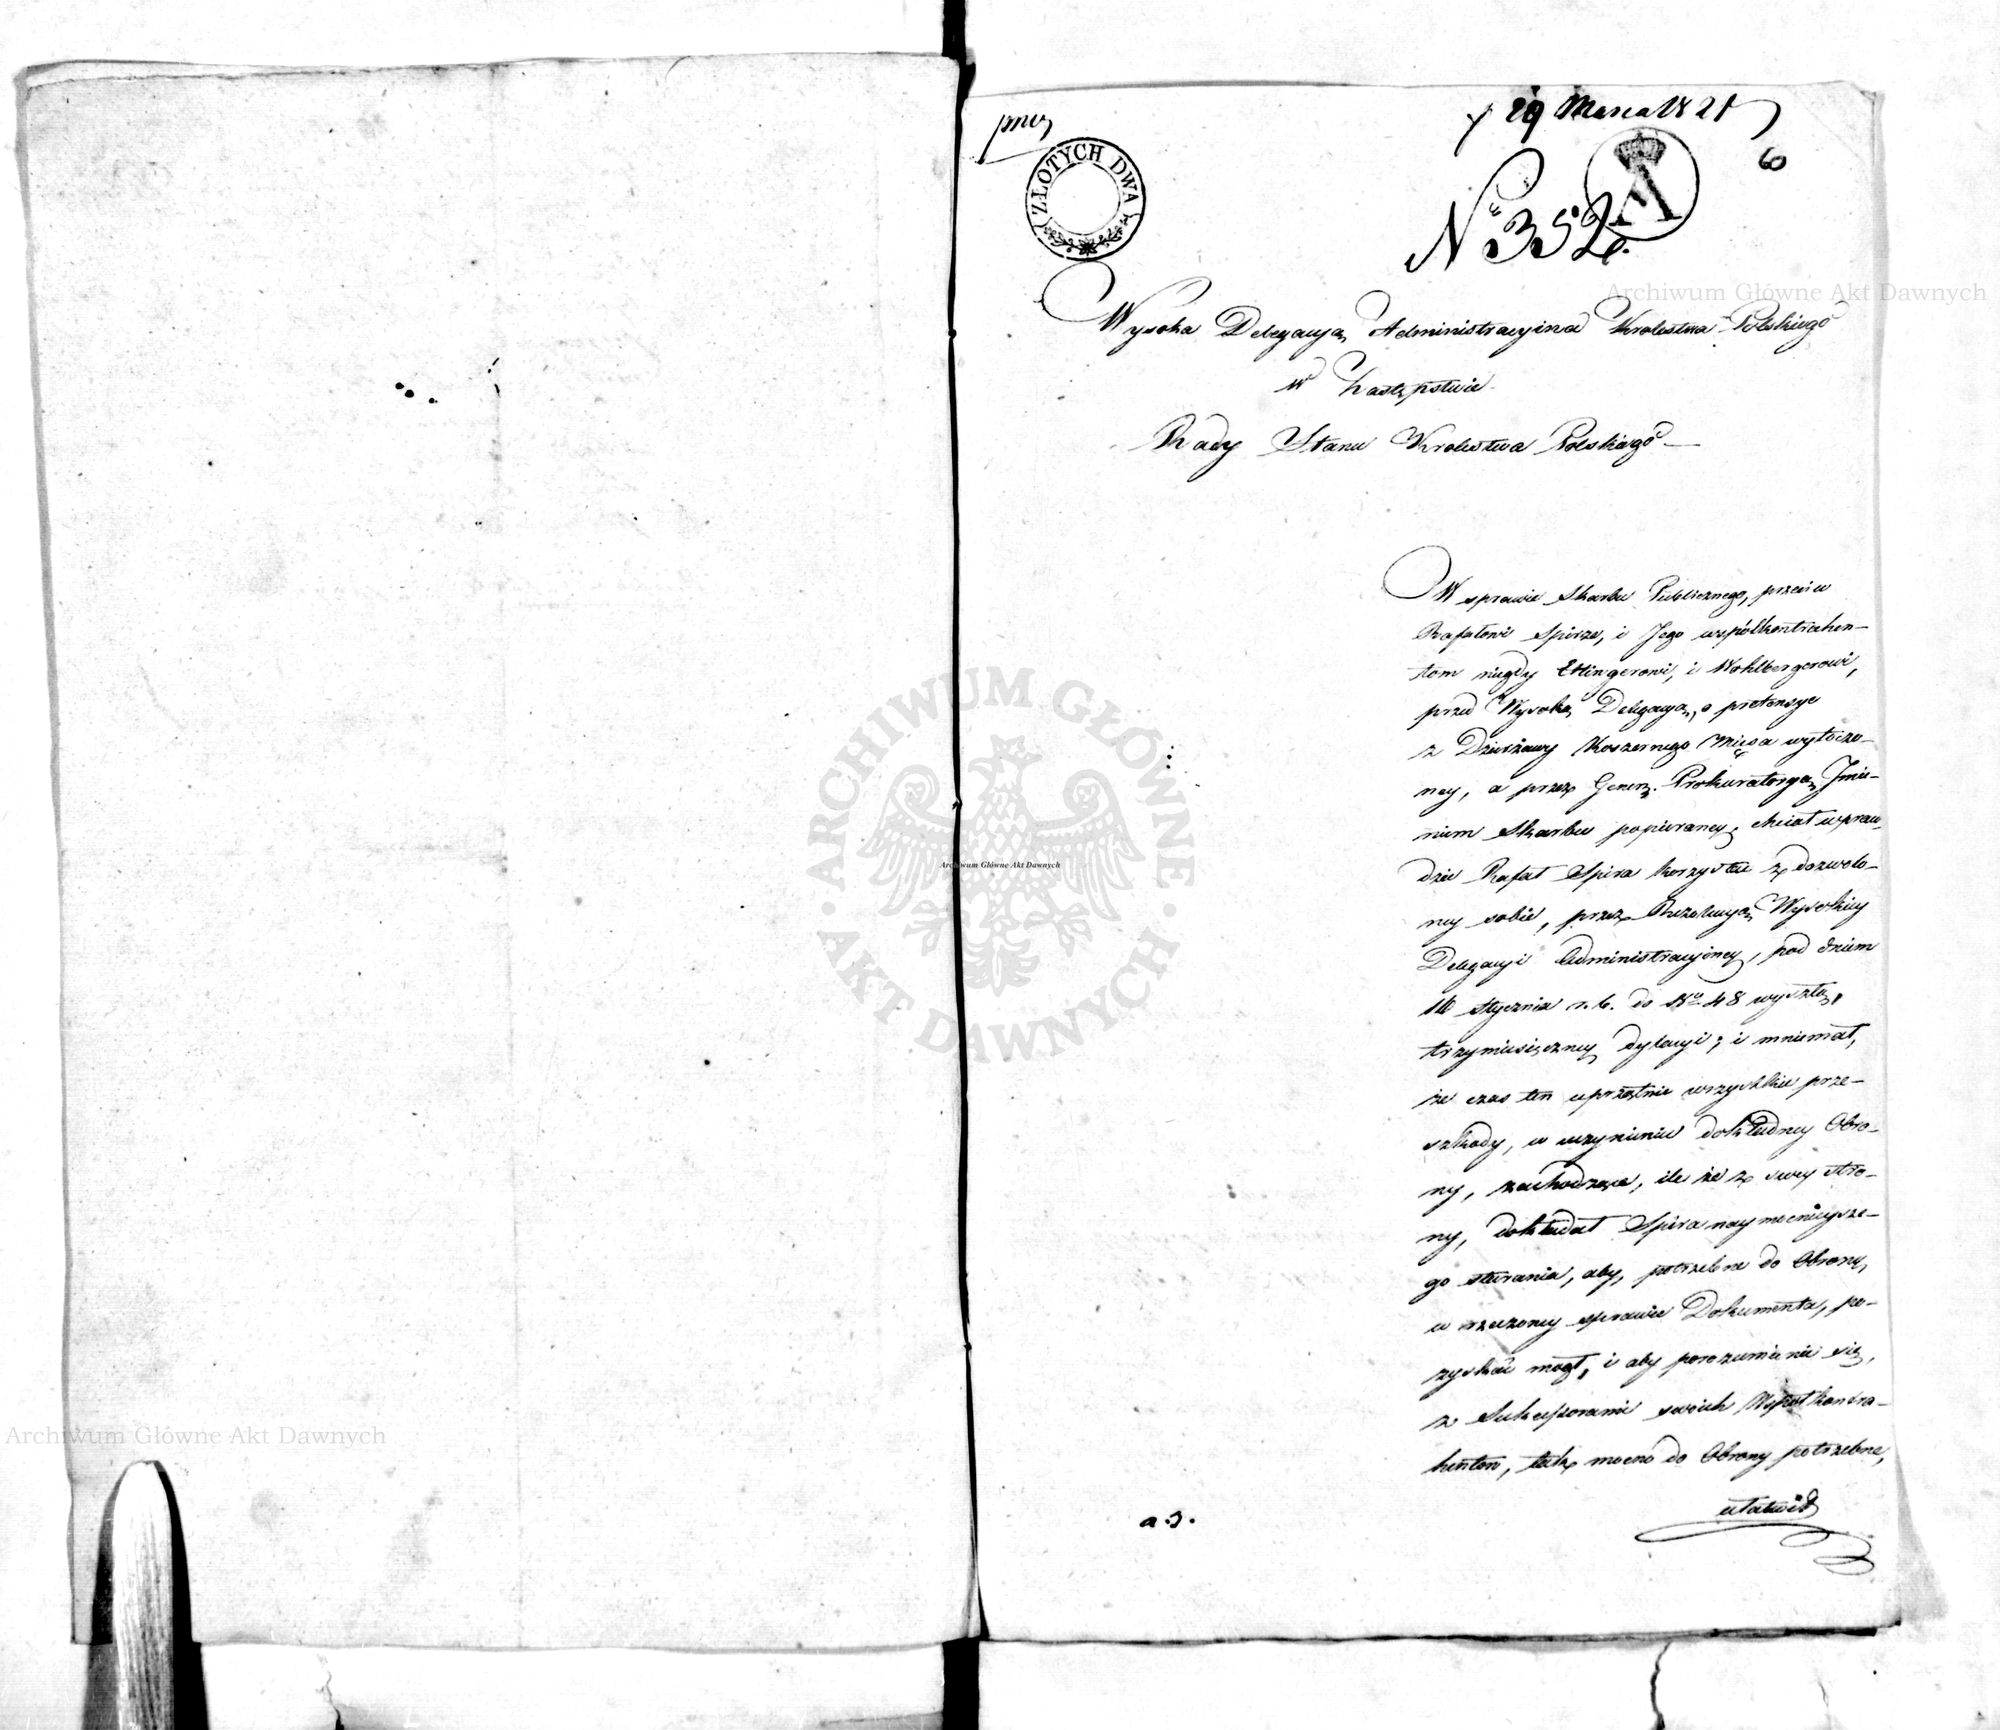 29 Marca 1821
6
ZŁOTYCH DWA
No 352.
Wysoka Delegacya Administracyina Krolestwa Polskiego
w Zastępstwie
Rady Stanu Krolestwa Polskiego
W sprawie Skarbu Publicznego, przeciw
Rafałowi Spirze, i Jego współkontrahen-
tom niegdy Ettingerowi, i Wohlbergerowi,
przed Wysoką Delegacyą, o pretensye
z Dzierżawy Koszernego Mięsa wytoczo-
ney, a przez Gener. Prokuratoryą Jmie-
niem Skarbu popieraney, chciał wpraw-
dzie Rafał Spira korzystać z dozwolo-
ney sobie, przez Rezolucyą Wysokiey
Delegacyi Administracyiney, pod dniem
16 Stycznia r. b. do No 48 wyszłą,
trzymiesięczney dylacyi; i mniemał,
że czas ten uprzątnie wszystkie prze-
szkody, w uczynieniu dokładney Obro-
ny, zachodzące, ile że z swey stro-
ny, dokładał Spira naymocnieysze-
go starania, aby, potrzebne do Obrony,
w rzeczoney sprawie Dokumenta, po-
zyskać mógł, i aby porozumienie się,
z Sukcessorami swoich Wspołkontra-
hentow, tak mocno do Obrony potrzebne,
ułatwił
a.s.
Archiwum Główne Akt Dawnych
Archiwum Główne Akt Dawnych
Archiwum Główne Akt Dawnych
ARCHIWUM GŁÓWNE
AKT DAWNYCH